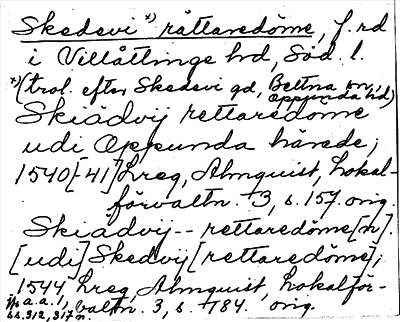 Skedevi *) rättaredöme, f.rd
i Villåttinge hd, Söd. l.
*) (trol. efter Skedevi gd, Bettna sn,
Oppunda hd)
Skiädvij rettaredöme
udi Oppunda härede;
1540[-41] Lreg, Almquist, Lokal-
förvaltn. 3, s. 157. orig.
Skiädvij -- rettaredöme[n].
[udi] Skedvij [rettaredöme];
1544 Lreg, Almquist, Lokalför-
valtn. 3, s. 184. orig.
a.a. 1,
ss. 312, 317 n.